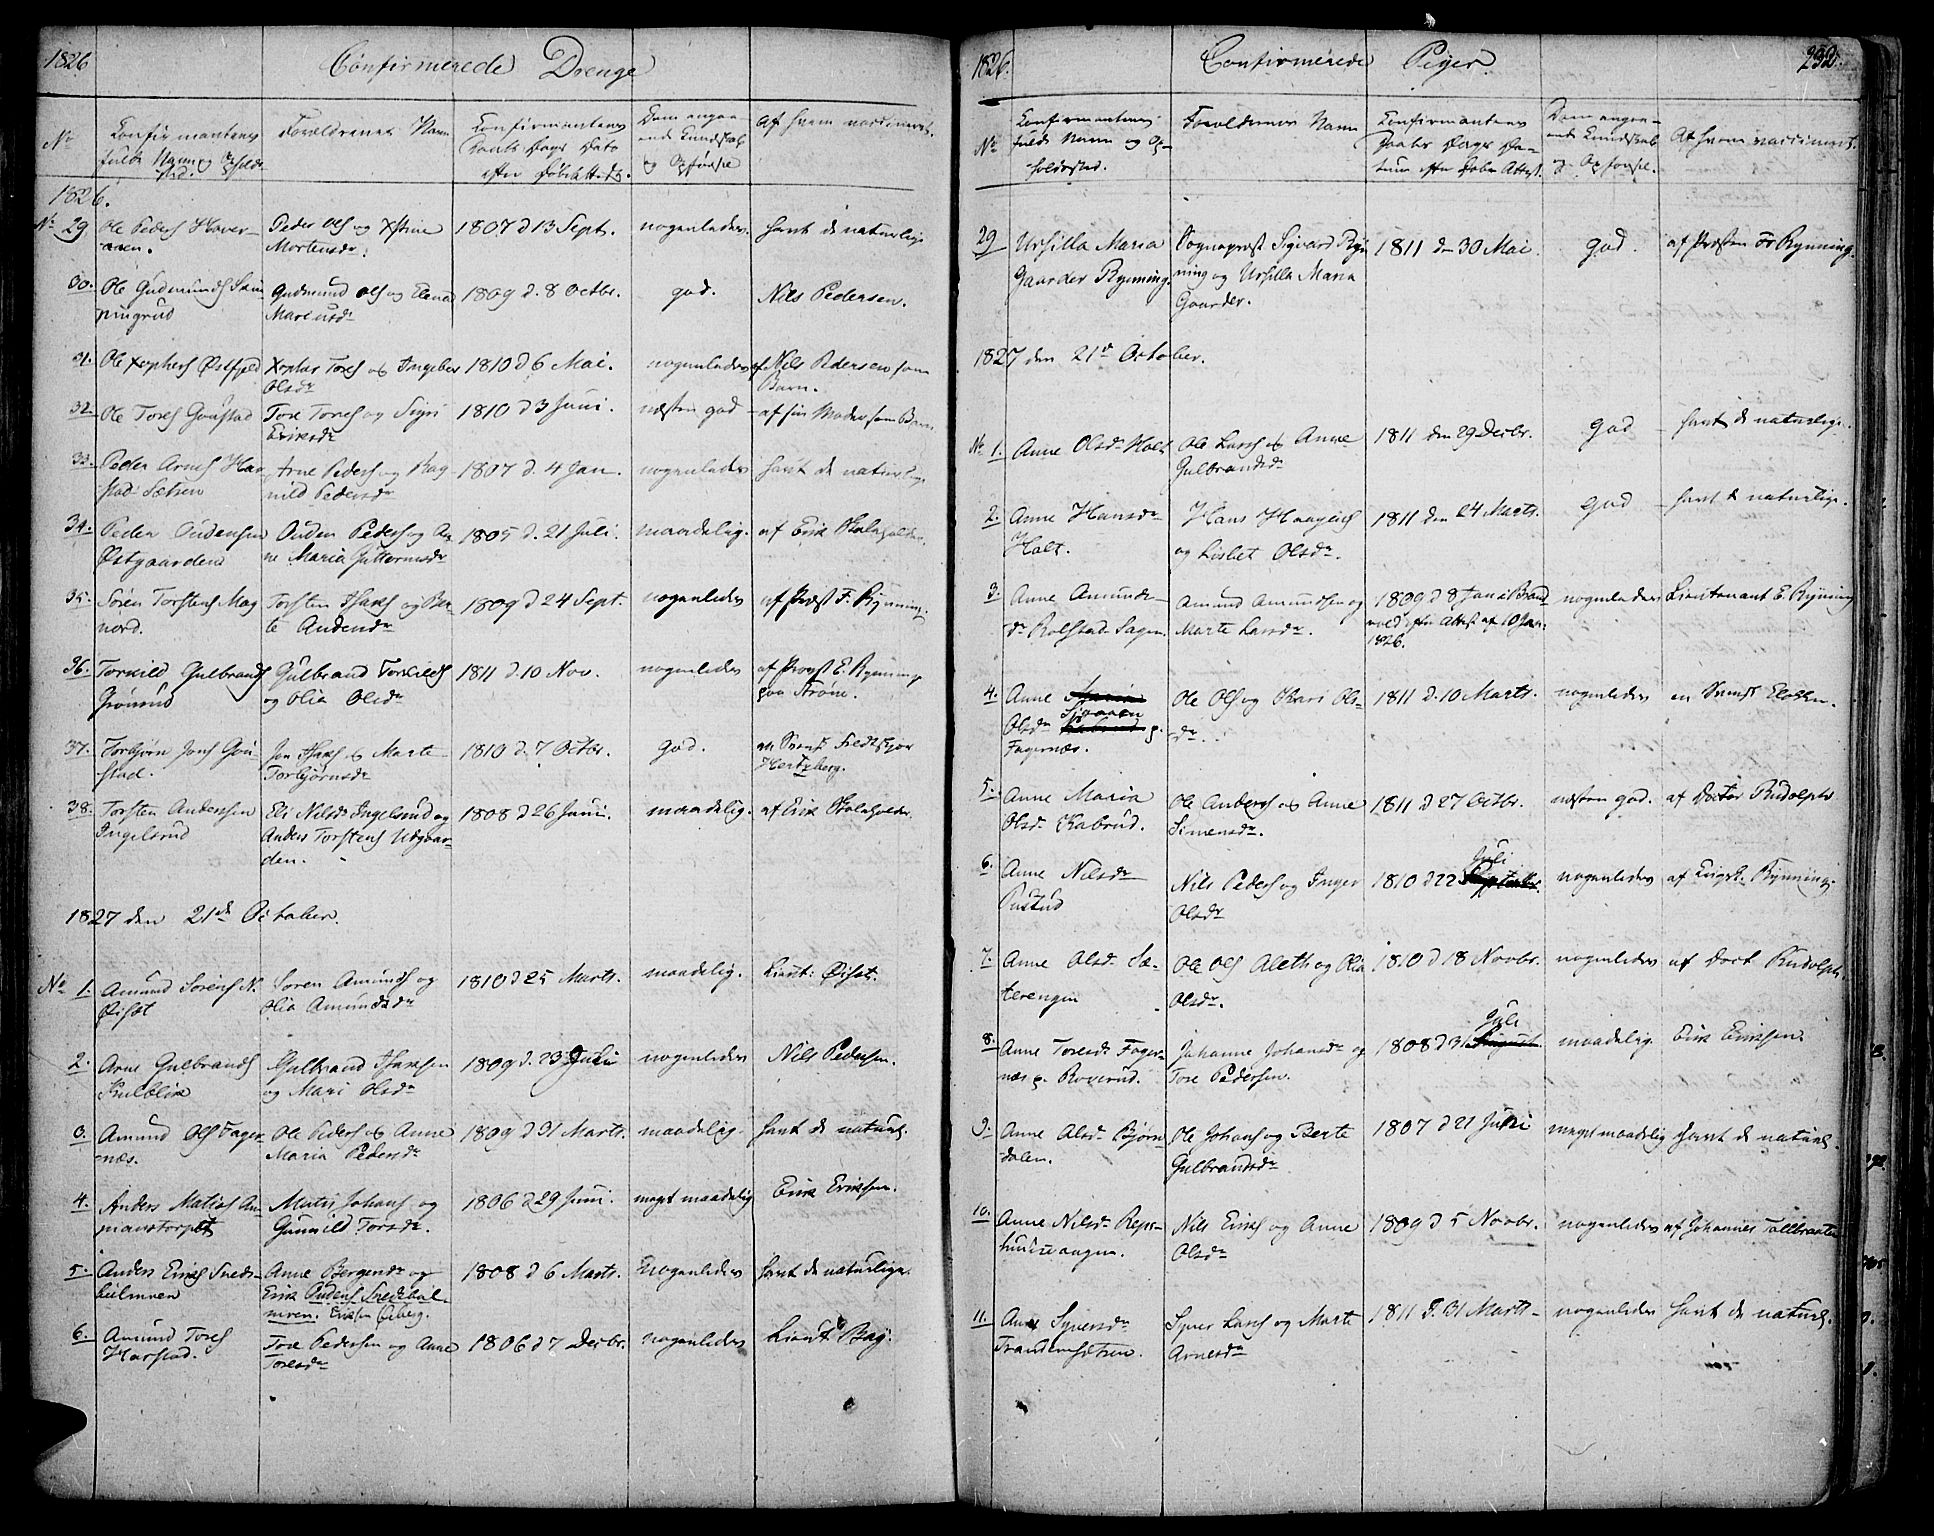 1826
Confirmerede Drenge
No
Confirmantens
fulde Navn og Opholds-
sted.
Forældrenes Navn
Confirmantens
Daabs Dags Dato
efter Døbeattest.
Dom angaa-
ende Kundskab
og Opførsel
af hvem vaccineret.
1826.
No 29
Ole Peders Haver-
Peder Ols og Xstine
Mortensdr.
1807 d 13 Sept.
nogenledes.
havt de naturlige
30.
Ole Gudmunds Sam-
pingrud
Gudmund Ols og Elena
Mariusdr
1809 d. 8 Octbr.
god.
Nils Pedersen.
31.
Ole Xophers Østfjeld
Xopher Tores og Ingebor
Olsdr
1810 d 6 Mai.
nogenledes
af Nils Pedersen som
Barn.
32.
Ole Tores Goustad
Tore Tores og Sigri
Eriksdr
1810 d 3 Juni.
næsten god
af sin Moder som Barn
33.
Peder Arnes Har-
stad Sætren
Arne Peders og Rag-
nild Pedersdr
1807 d. 4 Jan.
nogenledes
havt de naturlige
34.
Peder Audensen
Østgaarden
Auden Peders og An-
ne Maria Guttormsdr
1805 d. 21 Juli.
maadelig.
af Erik Skaleholder.
35.
Sören Torstens Mag-
nord.
Torsten Hans og Ber-
te Audendr
1809 d 24 Sept.
nogenledes
af Præst F. Rynning.
36.
Torkild Gulbrands
Grönnud
Gulbrand Torkilds
og Olia Olsdr
1811 d. 10 Nov.
nogenledes
af Provst E. Rynning
paa Ström.
37.
Torbjörn Jons Gou-
stad.
Jon Hans og Marte
Torbjörnsdr
1810 d. 7 Octbr.
god.
en Svend Fredr
Hertzberg.
38.
Torsten Andersen
Ingelsrud
Eli Nilsdr Ingelsrud og
Anders Torstens Udgaar-
den.
1808 d 26 Juni.
maadelig.
af Erik Skaleholder.
1827 den 21de October.
No 1.
Amund Sörens N.
Öiset
Sören Amunds og
Olia Amundsdr
1810 d 25 Marts.
maadelig.
Lieut: Öiset.
2.
Arne Gulbrands
Kulblik
Gulbrand Hansen
og Mari Olsdr
1809 d. 23 Juli
nogenledes
Nils Pedersen.
3.
Amund Ols Fager-
næs.
Ole Peders og Anne
Maria Pedersdr
1809 d 31 Marts.
maadelig.
havt de naturl.
4.
Anders Matias An-
manstorpet
Matis Johans og
Gunnild Torsdr.
1806 d 29 Juni.
meget maadelig
Erik Eriksen.
5.
Anders Eriks Sneds-
bölmoen
Anne Bergersdr og
Erik Audens Snedsböl-
moen. Eriksen Öiberg.
1808 d 6 Marts.
Nogenledes
havt de naturlige.
6.
Amund Tores
Harstad.
Tore Pedersen og Anne
Toresdr
1806 d 7 Decbr.
nogenledes
Lieut Bay.
1826.
Confirmerede Piger.
232.
No
Confirmantens
fulde Navn og Op-
holdssted.
Forældrenes Navn
Confirmantens
Daabs Dags Da-
tum efter Døbe Attest.
Dom angaa-
ende Kundskab
og Opførsel.
Af hvem vaccineret.
29
Ursilla Maria
Gaarder Rynning.
Sognepræst Sigvard Ryn-
ning og Ursilla Maria
Gaarder.
1811 den 30 Mai.
god.
af Præsten Fr Rynning.
1827 den 21de October.
No 1.
Anne Olsdr Holt
Ole Lars og Anne
Gulbrandsdr
1811 den 29 Decbr.
god
havt de naturlige.
2.
Anne Hansdr
Holt.
Hans Haagens
og Lisbet Olsdr.
1811 den 24 Marts.
god
havt de naturlige.
3.
Anne Amunds-
dr Rolstad Sagen
Amund Amundsen og
Marte Larsdr.
1809 d 8 Jan i Brand-
vold efter Attest af 10 Jan:
1826.
nogenledes
Lieutenant E. Rynning
4.
Anne Maria
Olsdr Sjoaaen
Fagernæs.
Ole Ols og Kari Ols-
dr.
1811 d. 10 Marts.
nogenledes
en Svend Elotten.
5.
Anne Maria
Olsdr Kabrud.
Ole Anders og Anne
Simensdr.
1811 d 27 Octbr.
næsten god.
af Doctor Rudolph
6.
Anne Nilsdr
Pustud
Nils Peders og Inger
Olsdr
1810 d 22 September Juli
nogenledes
af Rynning.
7.
Anne Olsdr Sæ-
terengen
Ole Ols Aleth og Olia
Olsdr.
1810 d 18 Novbr.
nogenledes
af Doct Rudolph
8.
Anne Toresdr Fager-
næs p. Roverud.
Johanne Johansdr og
Tore Pedersen.
1808 d 31 August Juli
maadelig
Erik Eriksen.
9.
Anne Olsdr Bjørn-
dalen.
Ole Johans og Berte
Gulbrandsdr
1807 d 21 Juni
meget maadelig
havt de naturl.
10.
Anne Nilsdr Repar-
husevangen.
Nils Eriks og Anne
Olsdr
1809 d 5 Novbr.
nogenledes
af Johannes Tallbraaten
11.
Anne Syversdr
Trandemsætren.
Syver Lars og Marte
Arnesdr
1811 d. 31 Marts
nogenledes
havt de naturl.